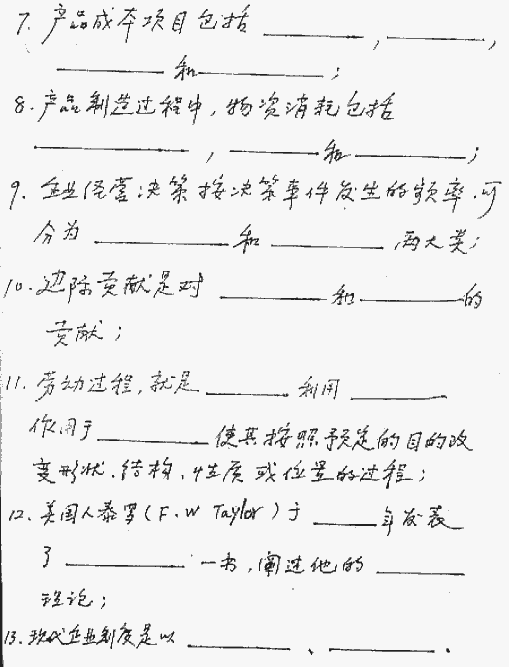 7. 产品成本项目包括 ________ , ________ ,
________ 和 ________ ;
8. 产品制造过程中, 物资消耗包括
________ , ________ 和 ________ ;
9. 企业经营决策按决策事件发生的频率.可
分为 ________ 和 ________ 两大类;
10. 边际贡献是对 ________ 和 ________ 的
贡献;
11. 劳动过程,就是 ________ 利用 ________
作用于 ________ 使其按照预定的目的改
变形状.结构.性质或位置的过程;
12. 美国人泰罗(F.W Taylor)于 ________ 年发表
了 ________ 一书,阐述他的 ________
理论;
13. 现代企业制度是以 ________ 、 ________ .